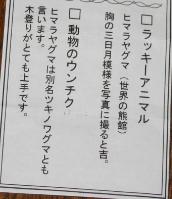 □ ラッキーアニマル
ヒマラヤグマ(世界の熊館)
胸の三日月模様を写真に撮ると吉。
□ 動物のウンチク
ヒマラヤグマは別名ツキノワグマとも
言います。
木登りがとても上手です。